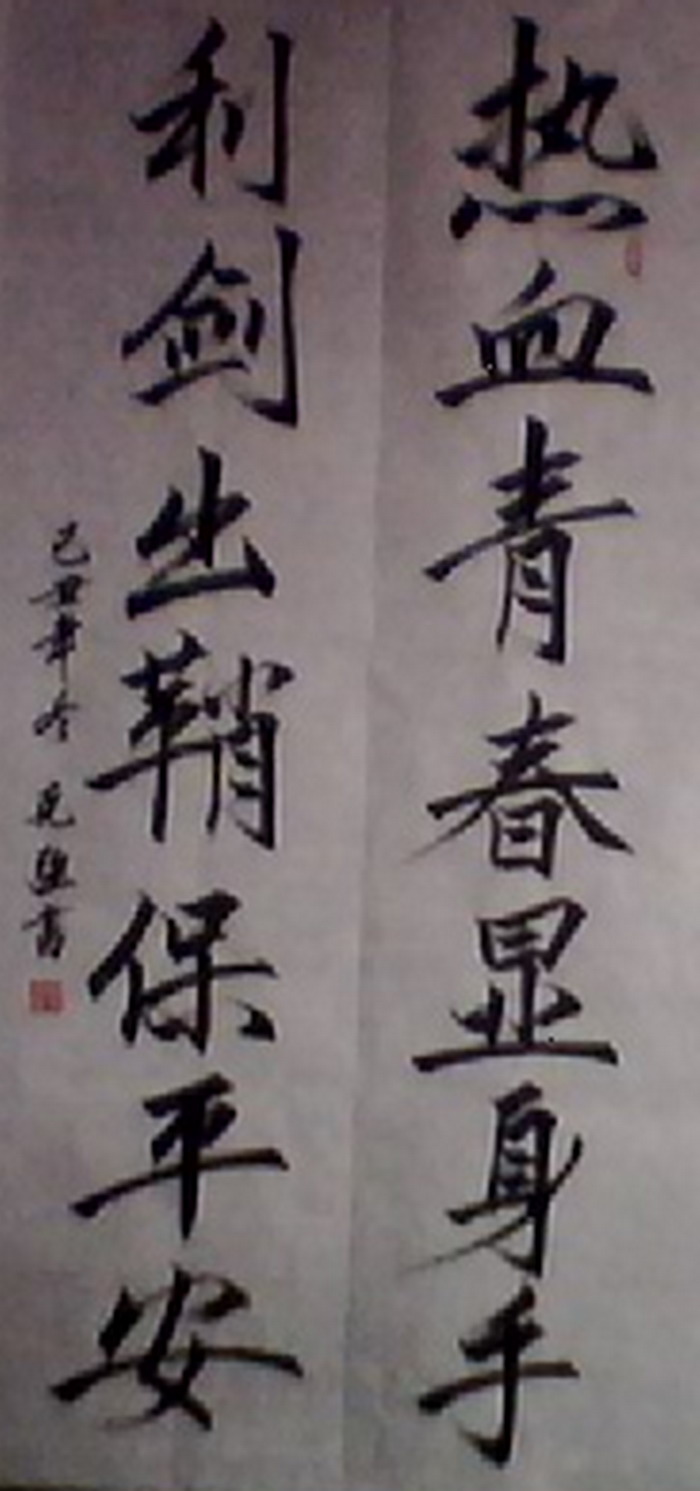 热血青春显身手
利剑出鞘保平安
己丑年冬
书